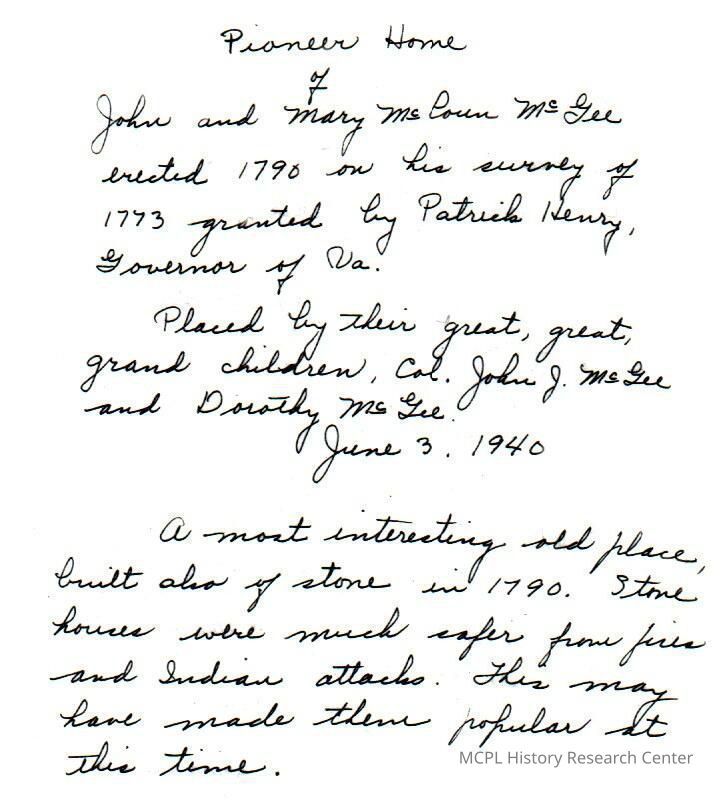 Pioneer Home
of
John and Mary McCoun McGee
erected 1790 on his survey of
1773 granted by Patrick Henry,
Governor of Va.
Placed by their great, great,
grand children, Col. John J. McGee
and Dorothy McGee.
June 3, 1940
A most interesting old place,
built also of stone in 1790. Stone
houses were much safer from fires
and Indian attacks. This may
have made them popular at
this time.
MCPL History Research Center